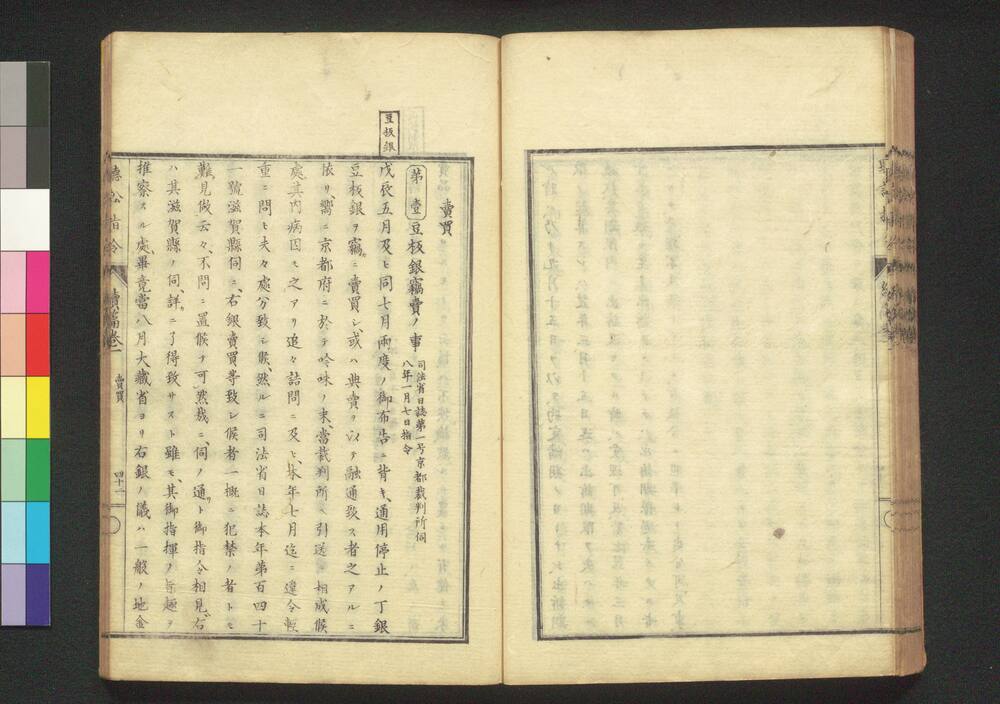 豆板銀
賣買
第壹 豆板銀竊賣ノ事 司法省日誌第一号京都裁判所伺
八年一月七日指令
戊辰五月及ヒ同七月兩度ノ御布告ニ背キ、通用停止ノ丁銀
豆板銀ヲ竊ニ賣買シ、或ハ典賣ヲ以テ融通致ス者之アルニ
依リ、嚮ニ京都府ニ於テ吟味ノ末、當裁判所ヘ引送 相成候
處、其内病囚モ之アリ追々詰問ニ及ヒ、本年七月迄ニ違令輕
重ニ問ヒ夫々處分致シ候、然ルニ司法省日誌本年第百四十
一號滋賀縣伺ニ、右銀賣買等致シ候者一概ニ犯禁ノ者トモ
難見做云々、不問ニ置候テ可然哉ニ、伺ノ通ト御指令相見、右
ハ其滋賀縣ノ伺、詳ニ了得致サスト雖モ、其御指揮ノ旨趣ヲ
推察スル處、畢竟當八月大藏省ヨリ右銀ノ儀ハ一般ノ地金
聽訟指令 續篇卷一 賣買 四十一